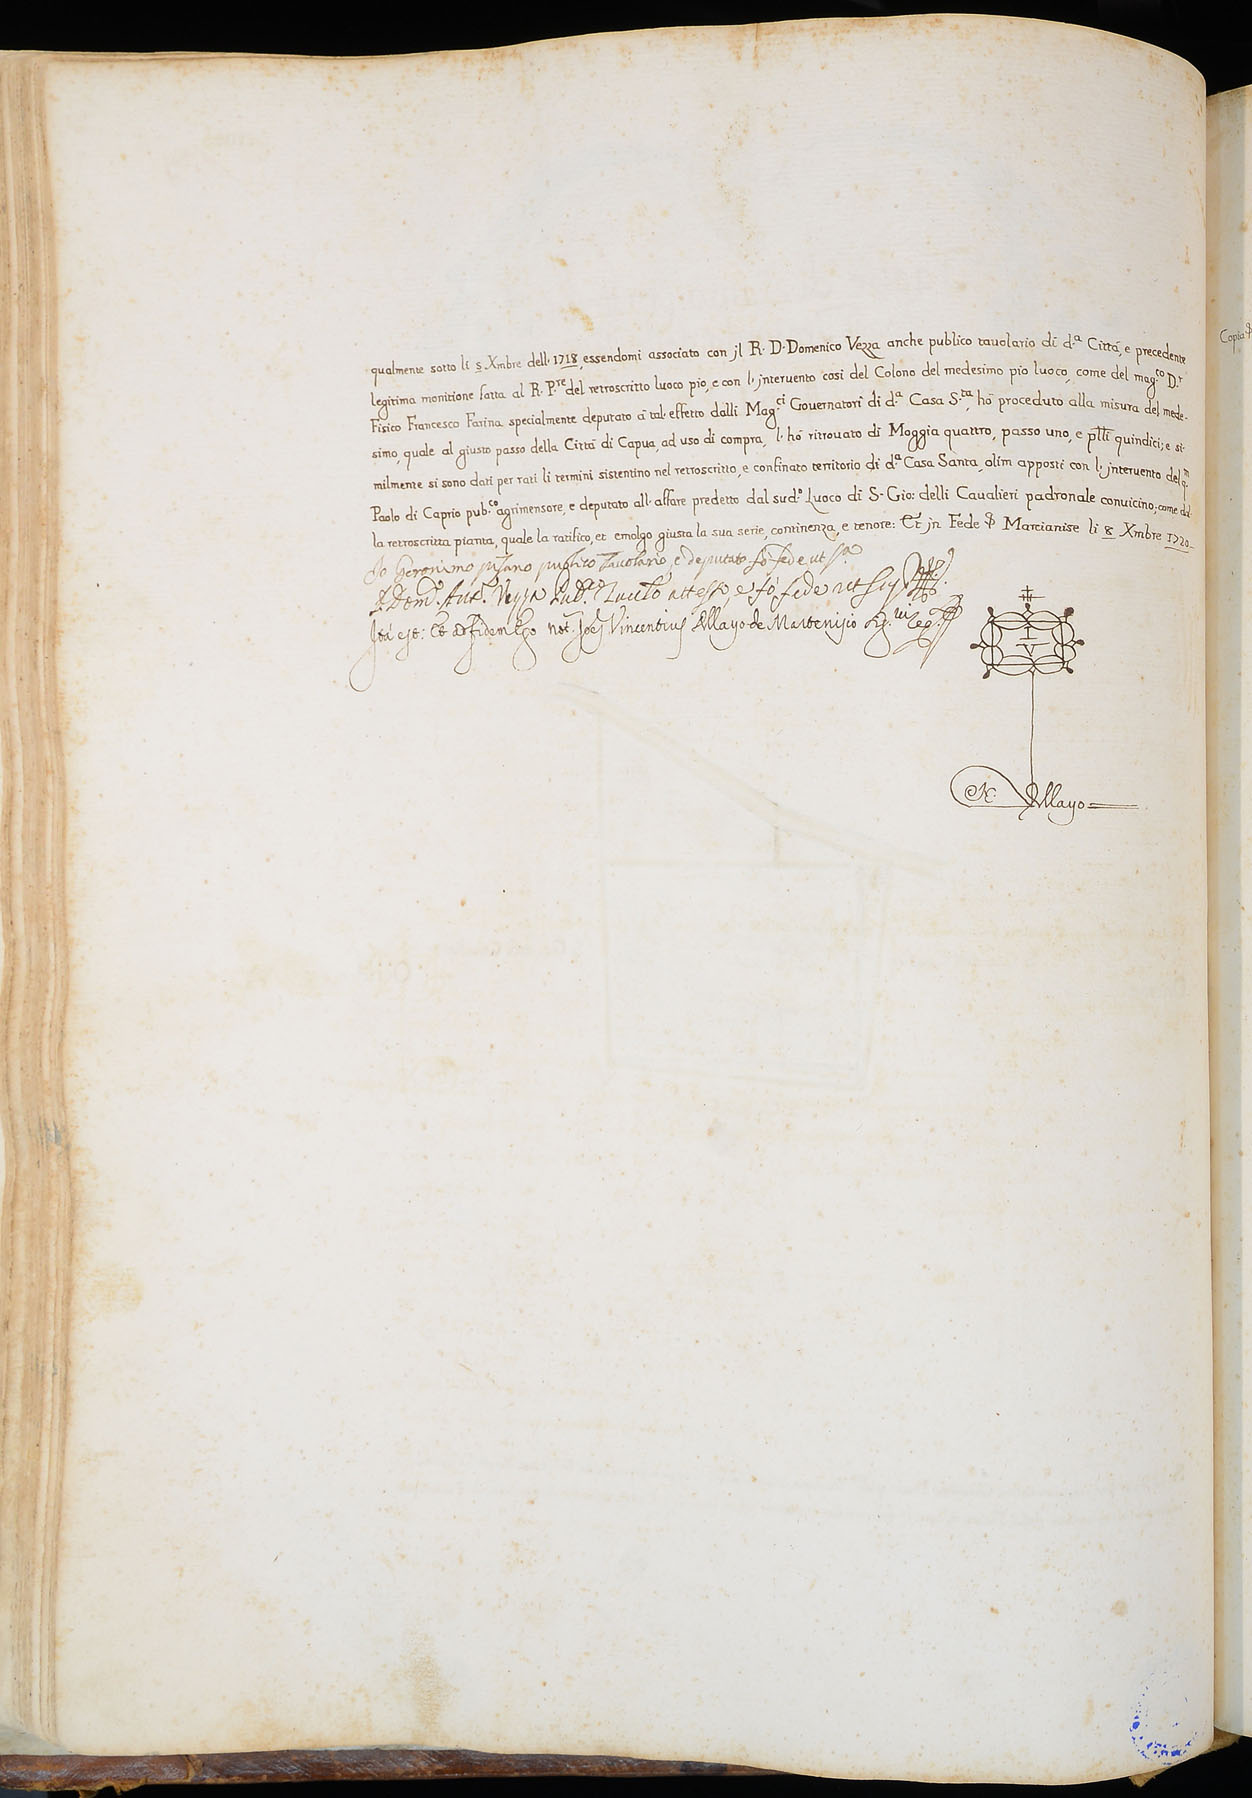 qualmente sotto li 8 Xmbre dell. 1718, essendomi associato con jl R. D. Domenico Vezza anche publico tauolario di d.a Città, e precedente
legitima monitione fatta al R. P.re del retroscritto luoco pio, e con l. jnteruento così del Colono del medesimo pio luoco, come del mag.co D.r
Fisico Francesco Farina specialmente deputato à tal. effetto dalli Mag.ci Gouernatori di d.a Casa S.ta, hò proceduto alla misura del mede-
simo, quale al giusto passo della Città di Capua, ad uso di compra, l. hò ritrouato di Moggia quattro, passo uno, e p̃lli quindici; e si-
milmente si sono dati per rati li termini sistentino nel retroscritto, e confinato territorio di d.a Casa Santa, olim apposti con l. jnteruento del q.m
Paolo di Caprio pub.co agrimensore, e deputato all. affare predetto dal sud.o Luoco di S. Gio: delli Caualieri padronale conuicino; come dal-
la retroscritta pianta, quale la ratifico, et emolgo giusta la sua serie, continenza, e tenore: Et jn Fede ꝑ Marcianise li 8 Xmbre 1720
Io Geronimo pisano publico Tauolario, e deputato fò fede ut s.a
Ant.o Vezza attesto, e fò fede ut sup.a
Ità est: Et ad fidem Ego not. Vincentius Allayo de Martenisio
I
V
N. Allayo
Copia ꝑ